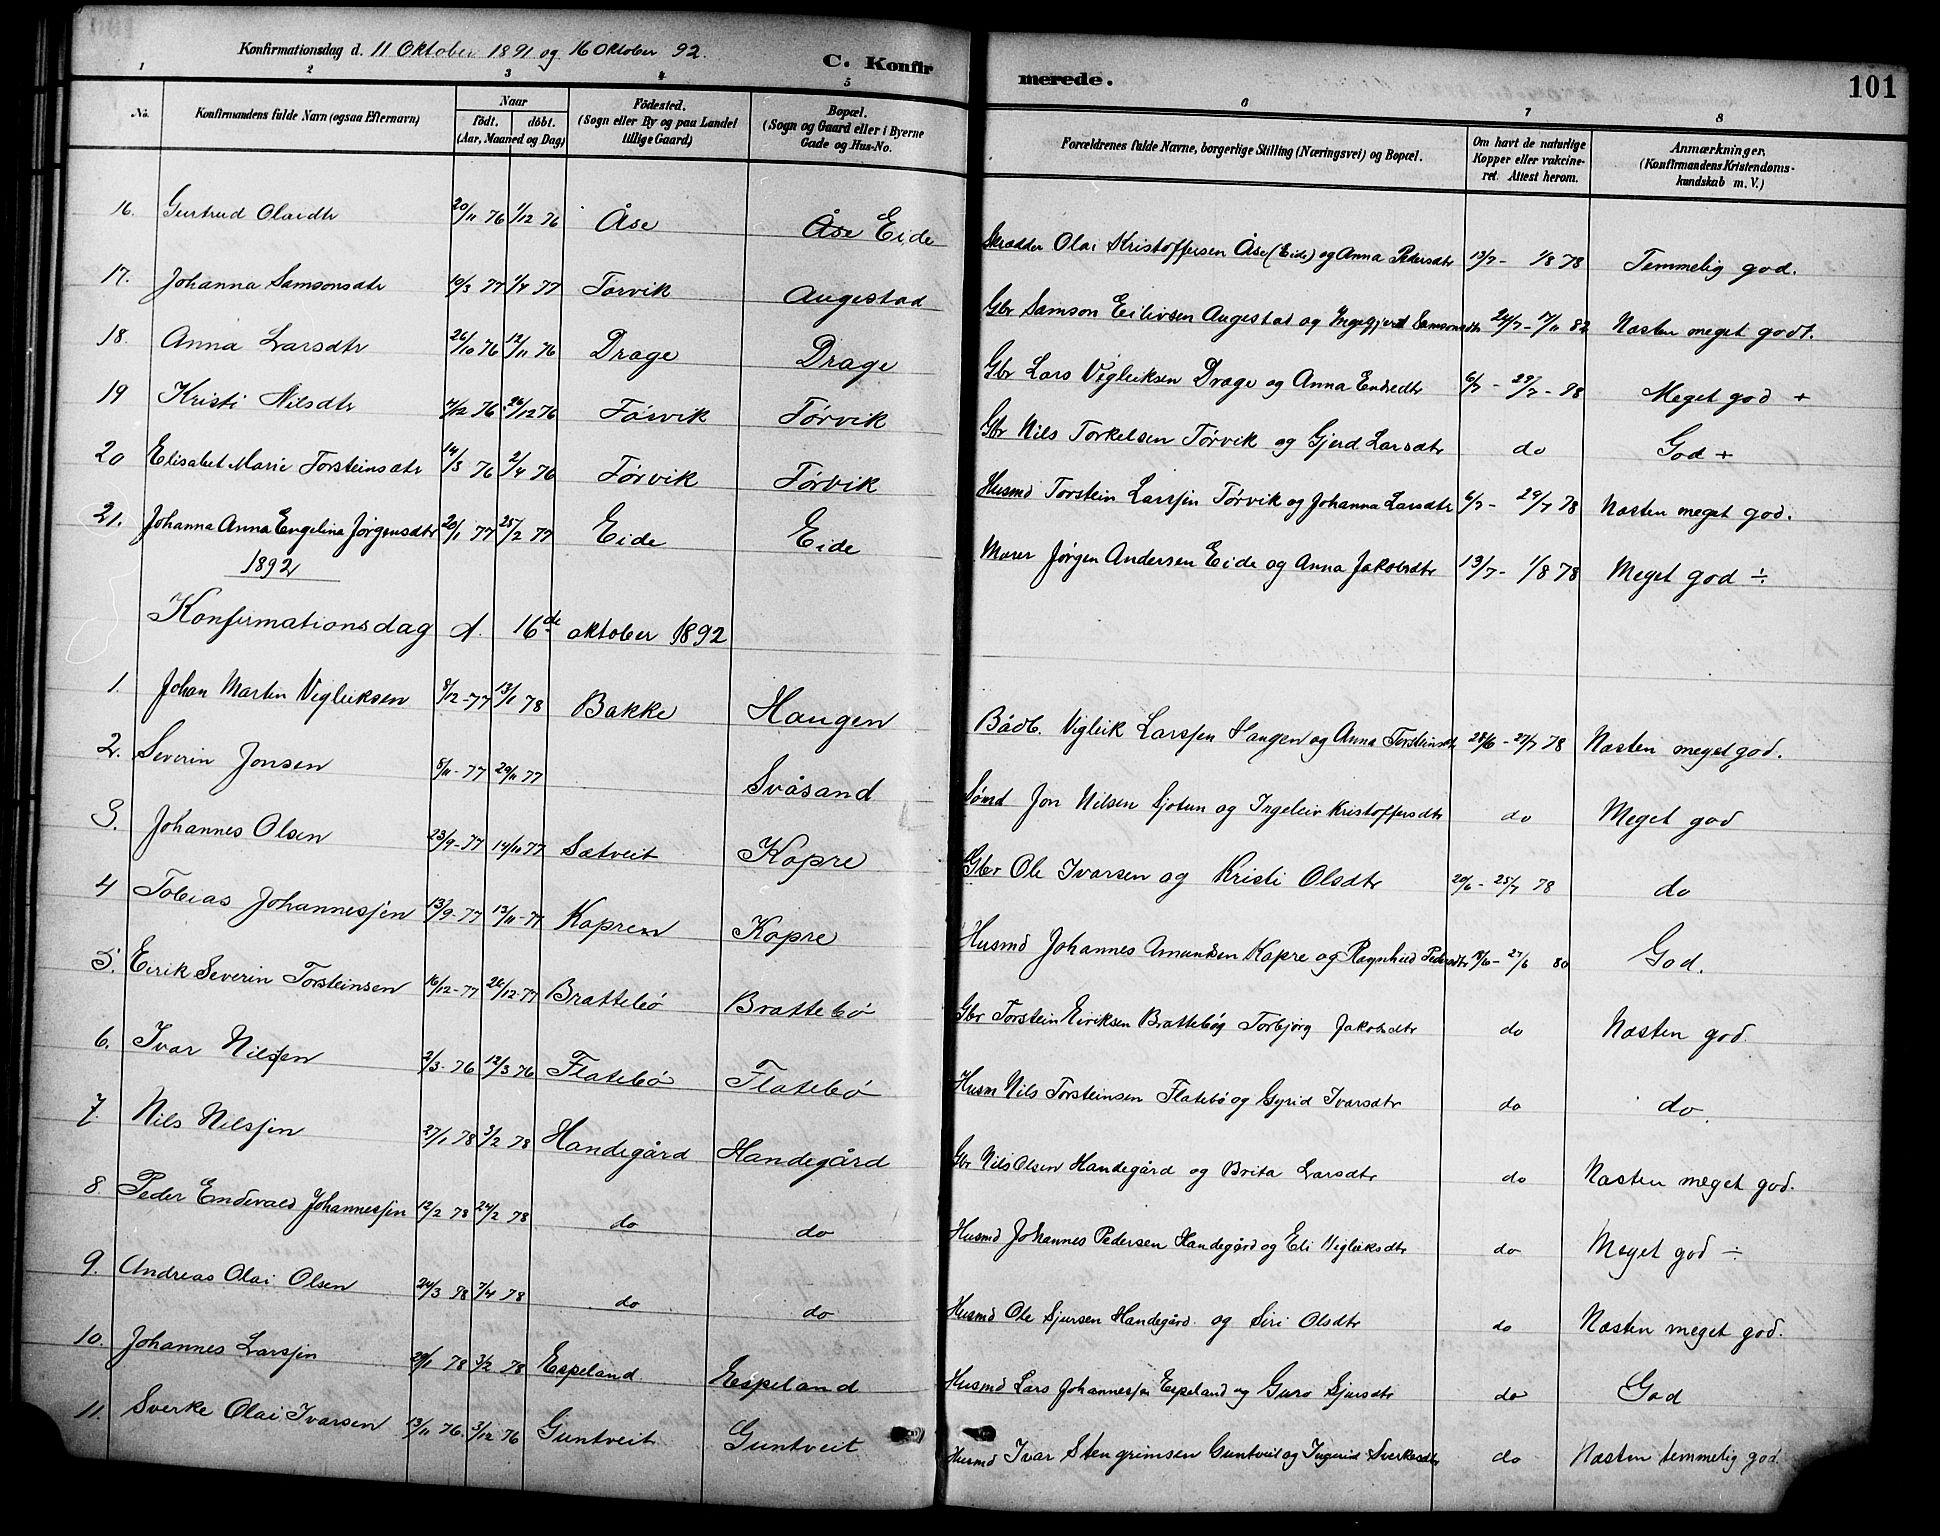 Konfirmationsdag d. 11 Oktober 1891 og 16 Oktober 92.
C. Konfirmerede.
101
1 2 3 4 5 6 7 8
No. | Konfirmandens fulde Navn (ogsaa Efternavn) | Naar födt. döbt. (Aar, Maaned og Dag) | Födested. (Sogn eller By og paa Landet tillige Gaard) | Bopæl. (Sogn og Gaard eller i Byerne Gade og Hus-No. | Forældrenes fulde Navne, borgerlige Stilling (Næringsvei) og Bopæl. | Om havt de naturlige Kopper eller vakcineret. Attest herom. | Anmærkninger. (Konfirmandens Kristendomskundskab m. V.)
16. Gurtrud Olaidtr 20/11 76 1/12 76 Åse Åse Eide Skrædder Olai Kristoffersen Åse (Eide) og Anna Pedersdtr 13/7 - 1/8 78 Temmelig god.
17. Johanna Samsonsdtr 10/3 77 1/4 77 Torvik Augestad Gbr Samson Eilivsen Augestad og Ingegjerd Samsonsdtr 24/7 - 7/11 82 Næsten meget godt.
18. Anna Larsdtr 26/10 76 12/11 76 Drage Drage Gbr Lars Vigleiksen Drage og Anna Endredtr 6/7 - 29/7 - 88 Meget god +
19 Kristi Nilsdtr 4/12 76 26/12 76 Törvik Törvik Gbr Nils Torkelsen Törvik og Gjerd Larsdtr do God +
20 Elisabet Marie Torsteinsdtr 14/3 76 2/4 76 Törvik Törvik Husmd Torstein Larssen Törvik og Johanna Larsdtr 6/7 - 29/7 78 Næsten meget god.
21. Johanna Anna Engelina Jörgensdtr 20/1 77 25/2 77 Eide Eide Murer Jörgen Andersen Eide og Anna Jakobsdtr 13/7 - 1/8 78 Meget god ÷
1892
Konfirmationsdag d. 16de oktober 1892
1. Johan Martin Vigleiksen 8/12 - 77 13/1 78 Bakke Haugen Bådb. Vigleik Larssen Haugen og Anna Torsteinsdtr 28/6 - 27/7 78 Næsten meget god.
2. Severin Jonsen 8/11 - 77 29/11 77 Svåsand Sömd Jon Nilsen Sjotun og Ingeleiv Kristoffersdtr do Meget god
3. Johannes Olsen 23/9 - 77 14/11 77 Sætveit Kopre Gbr Ole Ivarsen og Kristi Olsdtr 20/6 - 25/7 78 do
4 Tobias Johannessen 13/9 - 77 13/11 - 77 Kopren Kopre Husmd Johannes Amundsen Kopre og Ragnheid Pedersdtr 8/6 - 27/6 80 God.
5. Eirik Severin Torsteinsen 16/12 - 77 26/12 - 77 Brattebö Brattebö Gbr Torstein Eiriksen Brattebög Torbjörg Jakobsdtr do Næsten god.
6. Ivar Nilssen 2/3 - 76 12/3 76 Flatebö Flatebö Husm Nils Torsteinsen Flatebö og Gyrid Ivarsdtr do do.
7. Nils Nilssen 27/1 78 3/2 78 Handegård Handegård Gbr Nils Olsen Handegård og Brita Larsdtr do Næsten meget god.
8. Peder Endevald Johannessen 12/2 78 24/2 78 do do Husmd Johannes Pedersen Handegård og Eli Vigleiksdtr do Meget god ÷
9. Andreas Olai Olsen 24/3 78 7/4 78 do do Husmd Ole Sjursen Handegård og Siri Olsdtr do Næsten meget god.
10. Johannes Larssen 29/1 78 3/2 78 Espeland Espeland Husmd Lars Johannessen Espeland og Guro Sjursdtr do God
11. Sverke Olai Ivarsen 13/11 76. 3/12 76 Guntveit Guntveit Husmd Ivar Stengrimsen Guntveit og Ingerid Sverkesdtr do Næsten temmelig god.